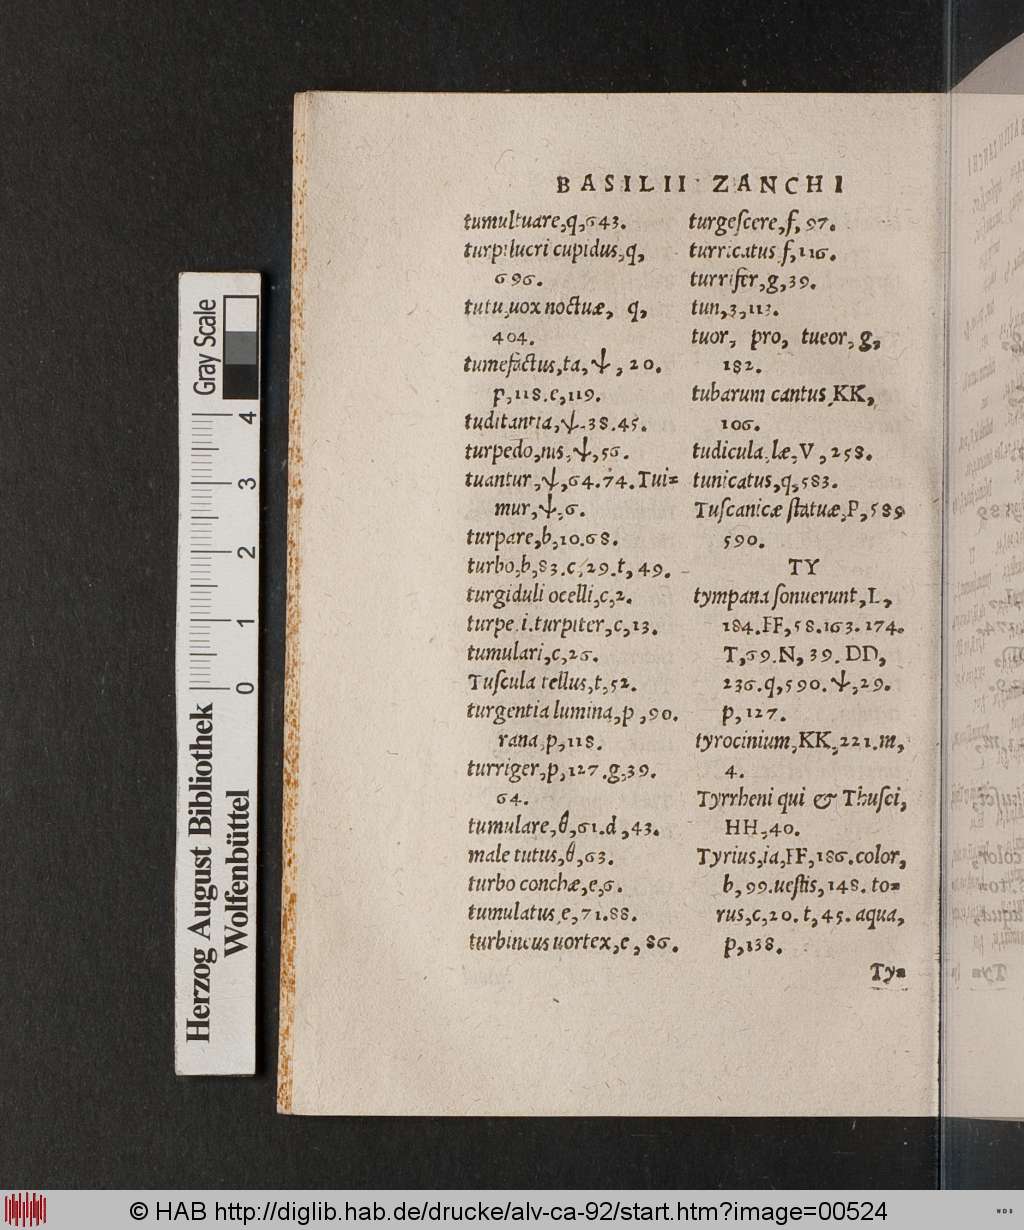 BASILII ZANCHI
tumultuare,q,643.
turpilucri cupidus,q,
696.
tutu,uox noctuæ, q,
404.
tumefactus,ta,ψ,20.
p,118.c,119.
tuditantia,ψ.38.45.
turpedo,nis,ψ,56.
tuantur,ψ,64.74.Tui=
mur,ψ,6.
turpare,b,10.68.
turbo,b,83.c,29.t,49.
turgiduli ocelli,c,2.
turpe.i.turpiter,c,13.
tumulari,c,26.
Tuſcula tellus,t,52.
turgentia lumina,p,90.
rana,p,118.
turriger,p,127.g,39.
64.
tumulare,θ,61.d,43.
male tutus,θ,63.
turbo conchæ,e,6.
tumulatus,e,71.88.
turbineus uortex,e,86.
turgeſcere,f,97.
turricatus f,116.
turrifer,g,39.
tun,3,113.
tuor, pro, tueor,g,
182.
tubarum cantus,KK,
106.
tudicula,læ,V,258.
tunicatus,q,583.
Tuſcanicæ ſtatuæ,P,589
590.
TY
tympana ſonuerunt,L,
184.FF,58.163.174.
T,69.N,39.DD,
236.q,590.ψ,29.
p,127.
tyrocinium,KK,221.m,
4.
Tyrrheni qui & Thuſci,
HH,40.
Tyrius,ia,FF,186.color,
b,99.ueſtis,148.to=
rus,c,20.t,45.aqua,
p,138.
Ty=
Gray Scale
4
3
2
1
0
Herzog August Bibliothek
Wolfenbüttel
© HAB http://diglib.hab.de/drucke/alv-ca-92/start.htm?image=00524